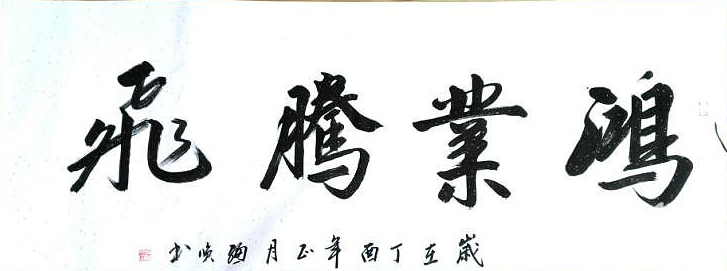 鴻業騰飛
歲在丁酉年正月 書